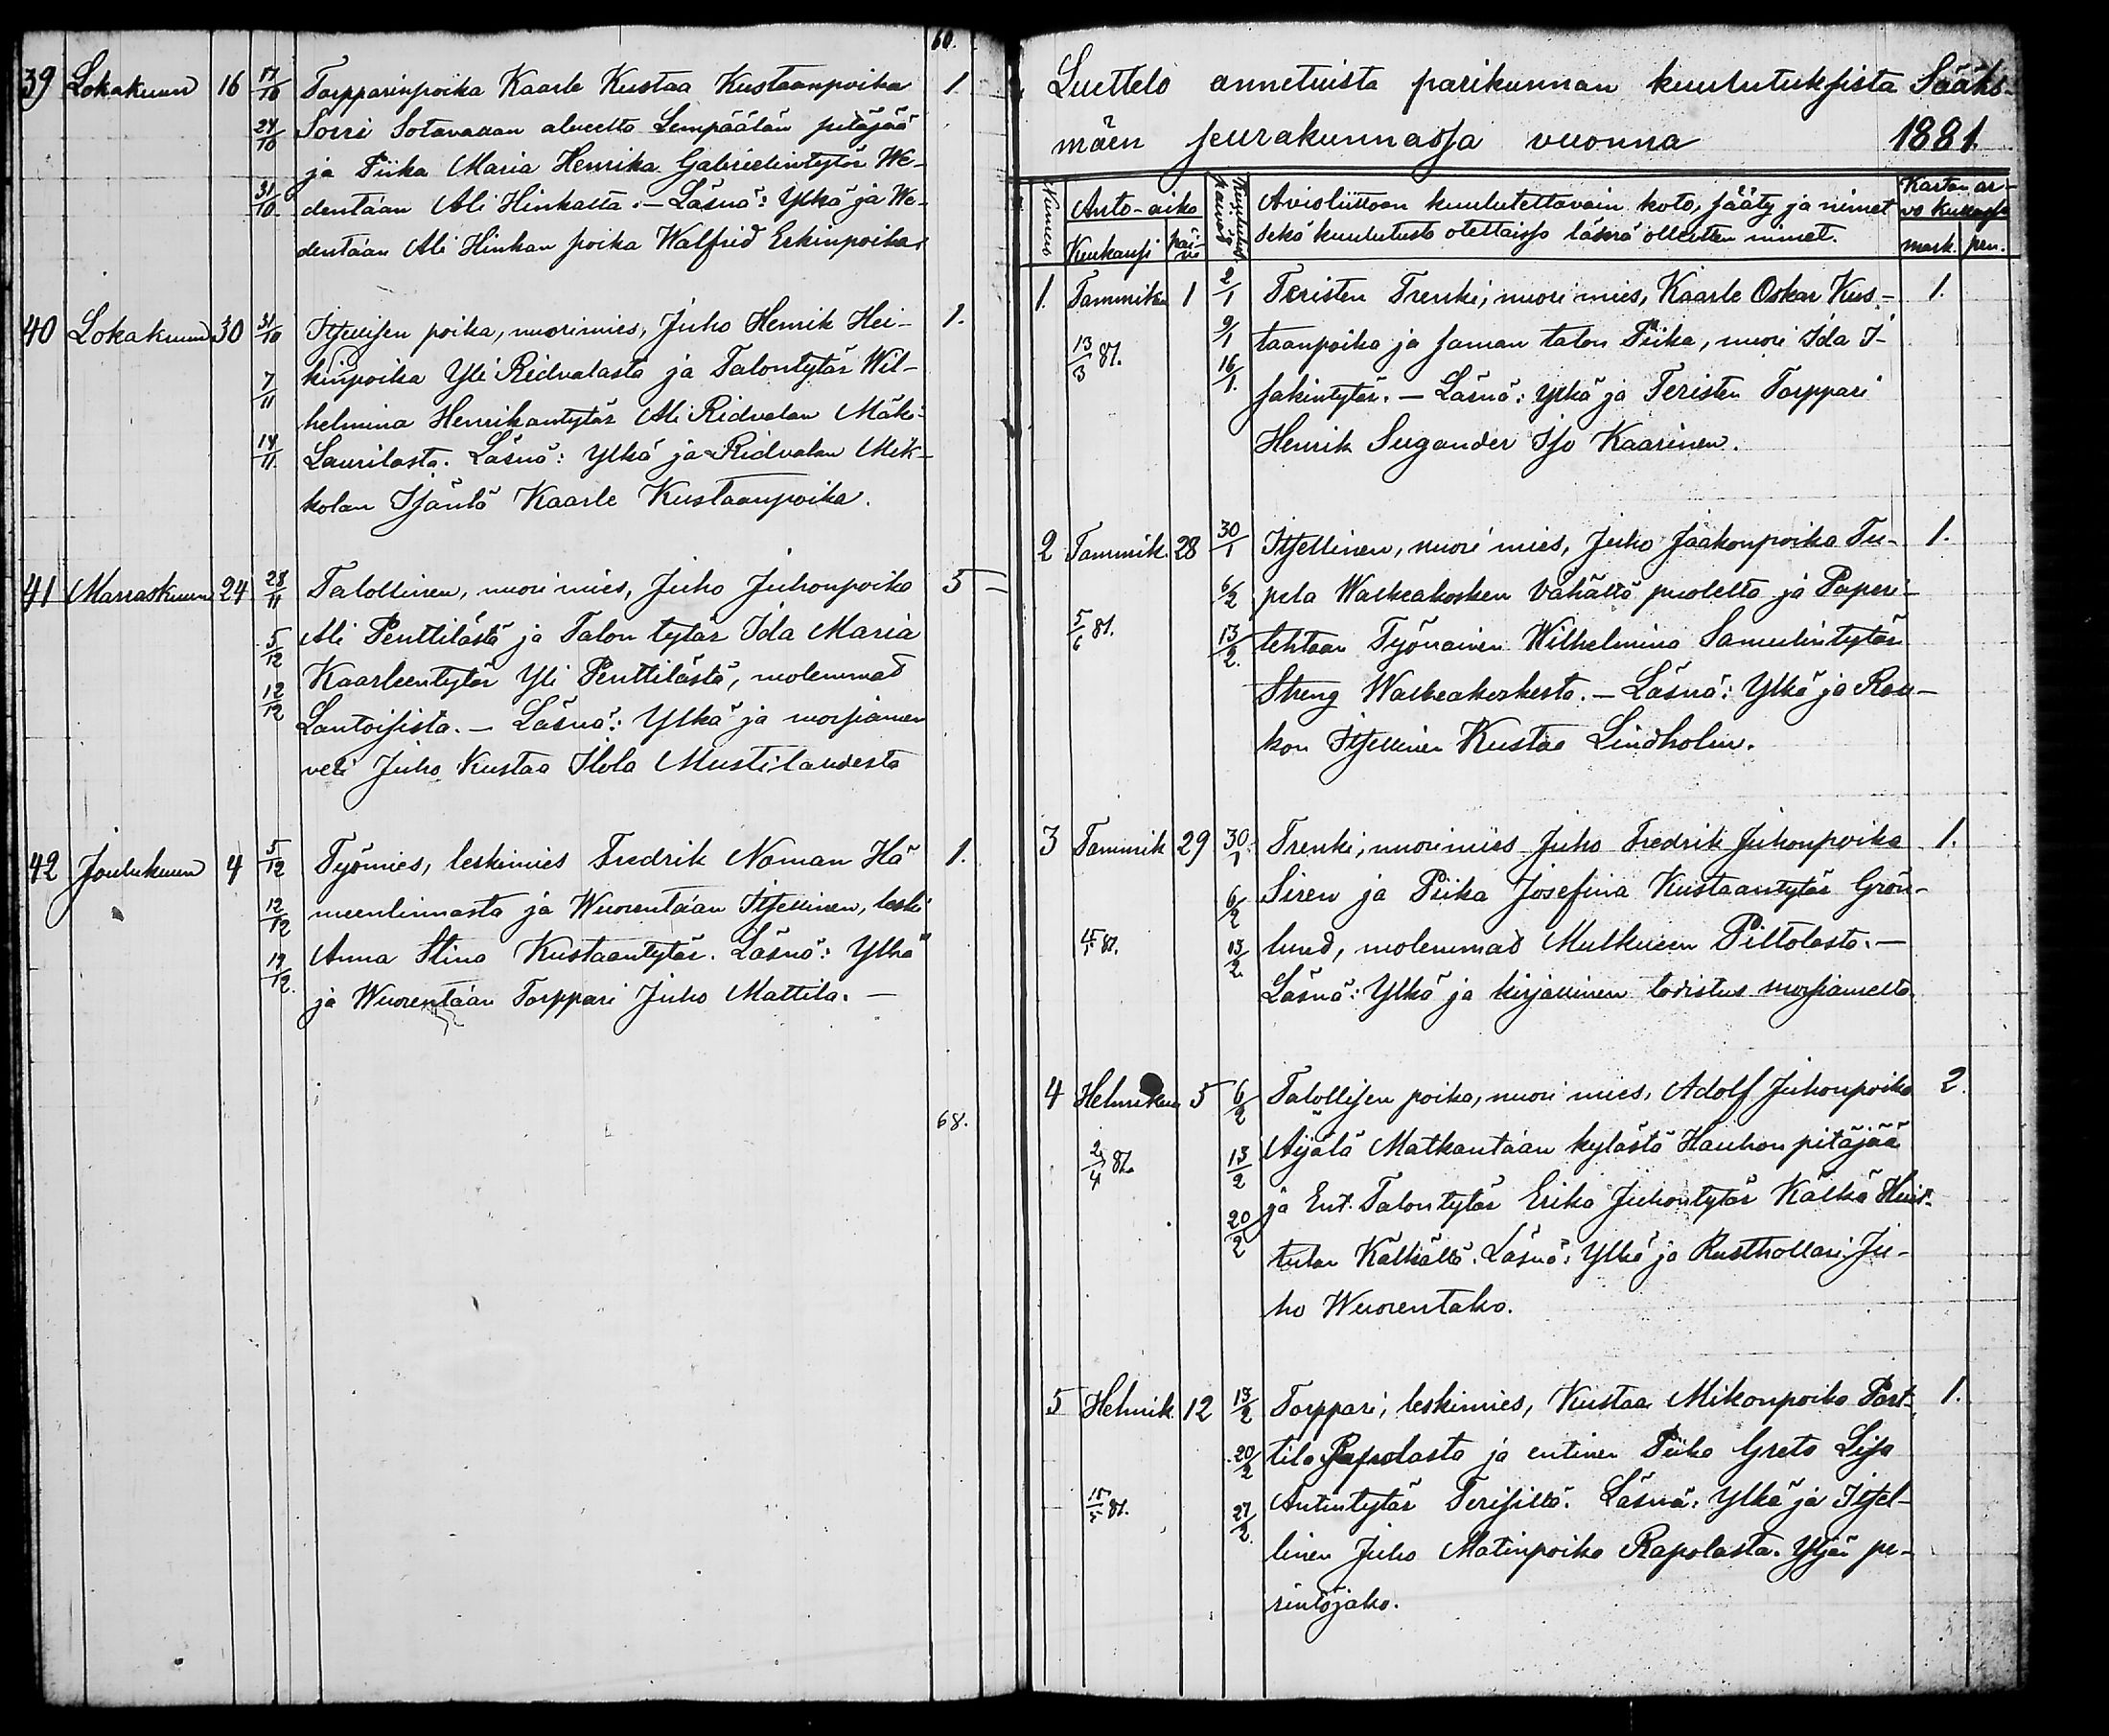 60.
39 Lokakuun 16 17/10 Torpparinpoika Kaarle Kustaa Kustaanpoika 1.
24/10 Sorri Sotavallan alueelta Lempäälän pitäjää
ja Piika Maria Henrika Gabrielintytär We-
31/10. dentaan Ali Hinkalta. — Läsnä: Ylkä ja We-
dentaan Ali Hinkan poika Walfrid Erkinpoika.
40 Lokakuun 30 31/10 Itsellisen poika, nuorimies, Juho Henrik Hei- 1.
kinpoika Yli Ridvalasta ja Talontytär Wil-
7/11 helmina Henrikantytär Ali Ridvalan Mäki-
14/11. Laurilasta. Läsnä: Ylkä ja Ridvalan Mik-
kolan Isäntä Kaarle Kustaanpoika.
41 Marraskuun 24 28/11 Talollinen, nuori mies, Juho Juhonpoika 5 —
5/12 Ali Penttilästä ja Talon tytär Ida Maria
Kaarleentytär Yli Penttilästä, molemmad
12/12 Lantoisista. — Läsnä: Ylkä ja morsiamen
veli Juho Kustaa Ilola Mustilaudesta
42 Joulukuun 4 5/12 Työmies, leskimies Fredrik Noman Hä 1.
12/12 meenlinnasta ja Wuorentaan Itsellinen, leski
19/12. Anna Stina Kustaantytär. Läsnä: Ylkä
ja Wuorentaan Torppari Juho Mattila. —
68.
Luettelo annetuista parikunnan kuulutuksista Sääks-
mäen seurakunnassa vuonna 1881.
Numero Anto-aika Kuukausi päivä Avioliittoon kuulutettavain koto, sääty ja nimet sekä kuulutusta otettaissa läsnä olleitten nimet. Kartan ar- vo mark. pen.
1. Tammikuu 1 2/1 Teristen Trenki, nuori mies, Kaarle Oskar Kus- 1.
13/3 81. 9/1 taanpoika ja saman talon Piika, nuori Ida I-
16/1. sakintytär. — Läsnä: Ylkä ja Teristen Torppari
Henrik Sugander Iso Kaarinen.
2 Tammik. 28 30/1 Itsellinen, nuori mies, Juho Jaakonpoika Tu- 1.
6/2 pela Walkeakosken Vähältä puolelta ja Paperi-
5/6 81. 13/2. tehtaan Työnainen Wilhelmina Samulintytär
Streng Walkeakoskesta. — Läsnä: Ylkä ja Rau-
kon Itsellinen Kustaa Lindholm.
3 Tammik 29 30/1 Trenki, nuorimies Juho Fredrik Juhonpoika 1.
6/2 Siren ja Piika Josefina Kustaantytär Grön-
81. 13/2. lund, molemmad Mulkueen Piltolasta. —
Läsnä: Ylkä ja kirjallinen todistus morsiamelta.
4 Helmikuu 5 6/2 Talollisen poika, nuori mies, Adolf Juhonpoika 2.
2/4 81. 13/2 Äijälä Matkantaan kylästä Hauhon pitäjää
20/2 ja Ent. Talontytär Erika Juhontytär Kälkä Huit-
tulan Kälkältä. Läsnä: Ylkä ja Rusthollari Ju-
ho Wuorentako.
5 Helmik. 12 13/2 Torppari, leskimies, Kustaa Mikonpoika Part- 1.
20/2 tila Rapolasta ja entinen Piika Greta Lisa
15/5 81. 27/2. Antintytär Terisiltä. Läsnä: Ylkä ja Itsel-
linen Juho Matinpoika Rapolasta. Yljän pe-
rintöjako.